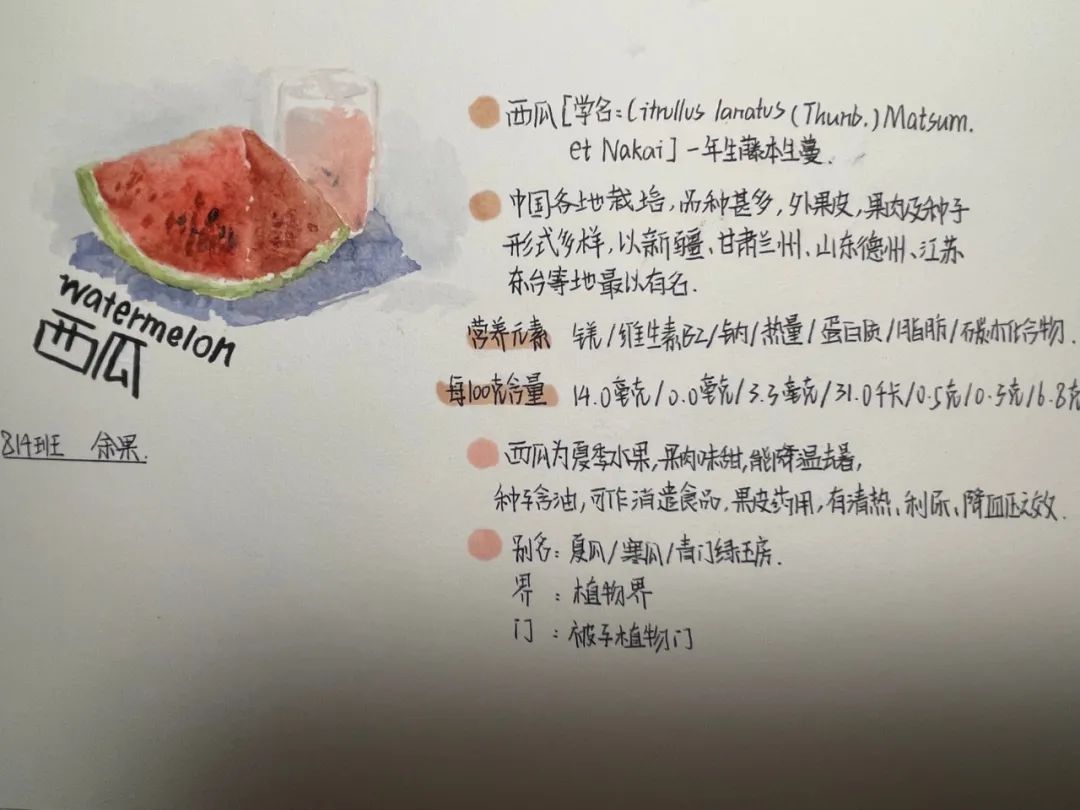 watermelon
西瓜
814班 余果.
西瓜[学名:Citrullus lanatus (Thunb.) Matsum.
et Nakai] 一年生藤本生蔓.
中国各地栽培,品种甚多,外果皮,果肉及种子
形式多样,以新疆、甘肃兰州、山东德州、江苏
东台等地最以有名.
营养元素 镁/维生素B2/钠/热量/蛋白质/脂肪/碳水化合物.
每100克含量 14.0毫克/0.0毫克/3.3毫克/31.0千卡/0.5克/0.3克/6.8克
西瓜为夏季水果,果肉味甜,能降温去暑,
种子含油,可作消遣食品,果皮药用,有清热、利尿、降血压之效.
别名:夏瓜/寒瓜/青门绿玉房.
界 : 植物界
门 : 被子植物门